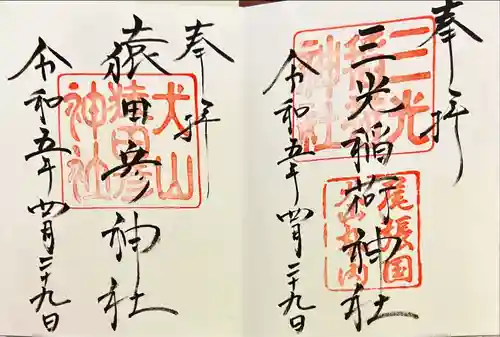 奉拝
三光稲荷神社
令和五年四月二十九日
三光
稲荷
神社
尾張国
奉拝
猿田彦神社
令和五年四月二十九日
犬山
猿田彦
神社